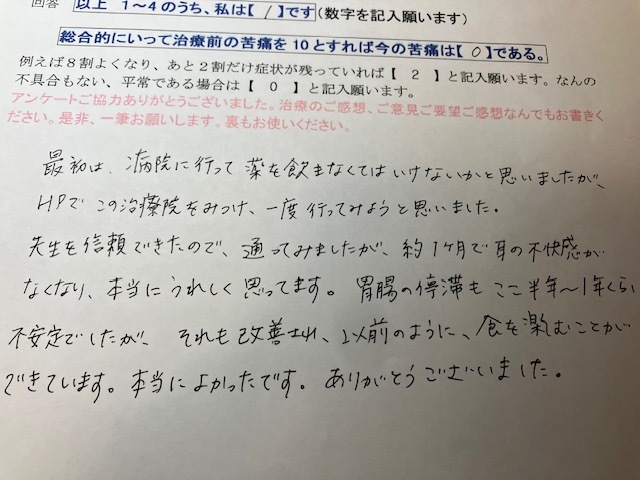 回答 以上 1～4のうち、私は【 1 】です(数字を記入願います)
総合的にいって治療前の苦痛を10とすれば今の苦痛は【 0 】である。
例えば8割よくなり、あと2割だけ症状が残っていれば【 2 】と記入願います。なんの
不具合もない、平常である場合は【 0 】と記入願います。
アンケートご協力ありがとうございました。治療のご感想、ご意見ご要望ご感想なんでもお書きく
ださい。是非、一筆お願いします。裏もお使いください。
最初は、病院に行って薬を飲まなくてはいけないかと思いましたが、
HPでこの治療院をみつけ、一度行ってみようと思いました。
先生を信頼できたので、通ってみましたが、約1ヶ月で耳の不快感が
なくなり、本当にうれしく思ってます。胃腸の停滞もここ半年～1年くらい
不安定でしたが、それも改善され、以前のように、食を楽しむことが
できています。本当によかったです。ありがとうございました。